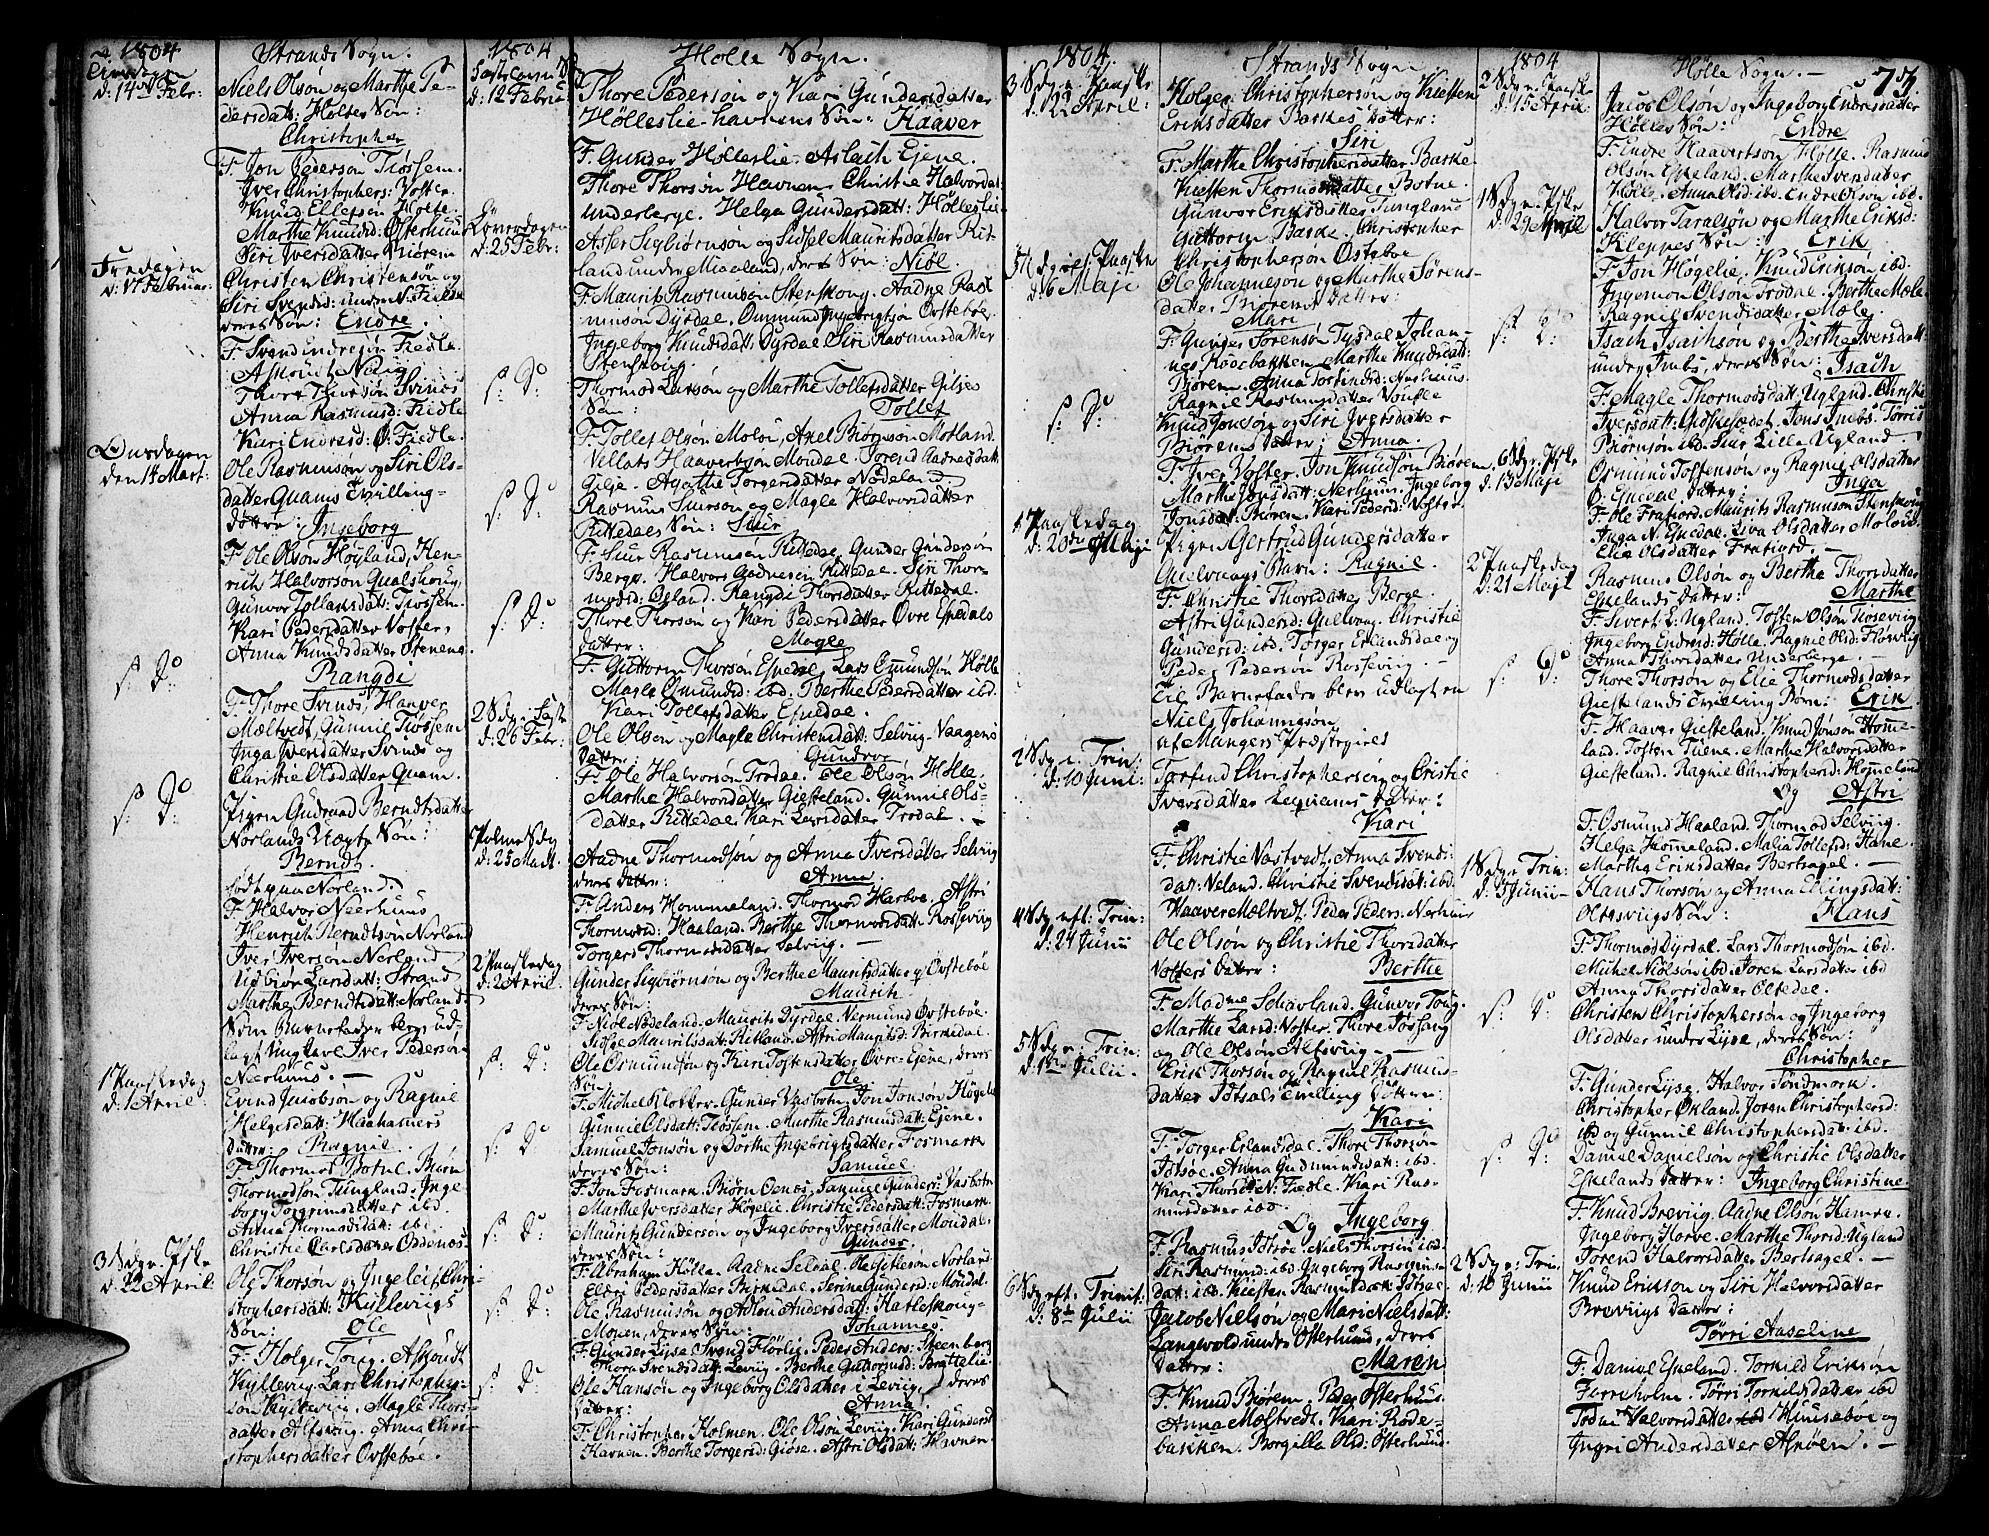 1804
Strands Sogn.
d: 14de Febr:
Niels Olsøn og Marthe Pe-
dersdatt: Holtes Søn:
Christopher
F. Jon Pedersøn Tiøssem.
Iver Christophers: Voster.
Knud Ellefsen Holte.
Marthe Knudsd: Østerhuus
Siri Iversdatter Biørem
Fredagen
d: 17 Februar:
Christen Christensøn og
Siri Svendsd: under N. Fiedle
deres Søn: Endre.
F. Svend Endresøn Fiedle.
Asmout Nesvig
Thore Thorsøn Svines
Anna Rasmusd: Fiedle
Kari Endresd: Ø: Fiedle.
Onsdagen
den 14 Mart:
Ole Rasmusøn og Siri Ols-
datter Quams Tvilling-
døttre: Ingeborg
F. Ole Olsøn Høyland, Hen-
rich Halvorsøn Qualshoug,
Gunvor Tollaksdatt: Tiøssem.
Kari Pedersdatter Voster,
Anna Knudsdatter Øreneng
s: D:
Rangdi
F. Thore Svines, Haaver
Mæltvedt, Gunnil Tiøssem
Inga Iversdatter Svines og
Christie Olsdatter Quam.
s: D:
Pigen Gudrun Berndtsdatter
Norlands Uægte Søn:
Berndt.
født paa Norland
F. Halvor Neerhuus
Henrich Berndtsøn Norland
Iver Iversøn Norland
Udbiør Larsdatt: Strand
Marthe Berndtsdatt: Norland
Som Barnefader blev ud-
lagt Ungkarl Iver Pedersøn
Neerhuus. —
1 Paaskedag
d: 1 April
Evind Jacobsøn og Ragnil
Helgesdatt: Haahamers
datter: Ragnil.
F. Thormod Botne. Biørn
Thormodsøn Tungland. Inge
borg Torgrimsdatter ibd.
Anna Thormodsdatt: ibd.
Christie Carlsdatter Oddenes
3 Sdg e. Pske
d: 22 April:
Ole Thorsøn og Ingeleif Chri-
stophersdatt: Kyllevigs
Søn: Ole
F. Holger Toug. Asmoudt
Kyllevig. Lars Christopher-
søn Kyllevig. Magle Thors-
datter Alfsvig. Anna Chri-
stophersdatter Øvstebøe.
1804
Hølle Sogn.
d: 12 Februar
Thore Pedersøn og Kari Gundersdatter
Hølleslie-havnens Søn: Haaver
F. Gunder Hølleslie. Aslach Ejene.
Thore Thorsøn Havnen Christie Halvordat:
underberge. Helga Gundersdatt: Hølleslie
Løverdagen
d: 25 Febr:
Asser Sigbiørnsøn og Sidsel Mauritsdatter Rit-
land under Miaaland, deres Søn: Niøl.
F. Maurits Rasmusøn Stenskoug. Aadne Ras-
musøn Dyrdal, Ommund Ingebrigtsøn Øvstebøe
Ingeborg Knudsdatt: Dyrdal Siri Rasmusdatter
Stenskoug.
s: D:
Thormod Larsøn og Marthe Tollefsdatter Giljes
Søn: Tollef
F. Tollef Olsøn Moloug, Axel Biørnsøn Motland
Villats Haaverdsøn Mondal. Torend Aadnesdatt:
Gilje. Agathe Torgersdatter Nødeland.
s: D:
Rasmus Siursøn og Magla Halvorsdatter
Rittedals Søn: Siur
F. Siur Rasmusøn Rittedal Gunder Gundersøn
Berge. Halvor Aadnesøn Rittedal. Siri Thor-
modsd: Øsland. Rangdi Thorsdatter Rittedal
s: D:
Thore Thorsøn og Kari Pedersdatter Øvre Espedals
datter: Magle
F. Guttorm Thorsøn Espedal Lars Omundsøn Hølle
Magla Omundsd: ibd: Berthe Pedersdatter ibd.
Kari Tollefsdatter Espedal.
2 Sdg i Faste
d: 26 Febr:
Ole Olsøn og Magla Christensdatt: Selvig-Vaagens
datter: Gundroe
F. Ole Halvorsøn Trodal. Ole Olsøn Hølle.
Marthe Halvorsdatter Giesteland. Gunnil Ols-
datter Rittedal. Kari Larsdatter Trodal. —
Palme Sdg
d: 25 Mart:
Aadne Thormodsøn og Anna Iversdatter Selvig
deres datter: Anna.
F. Anders Hommeland. Thormod Harboe. Astri
Thormodsd: Haaland. Berthe Thormodsdatter Rosseving
Torgers Thormodsdatter Selviig. —
2 Paaskedag
d: 2 April.
Gunder Sigbiørnsøn og Berthe Mauritsdatter Øvstebøe
deres Søn: Maurits.
F. Niøl Nødeland. Maurits Dyrdal. Vermund Øvstebøe.
Sidsel Mauritsdatt: Ritland. Astri Mauritsd: Birkedal
s: D:
Ole Osmundsøn og Kari Tostensdatter Øvre-Ejene, deres
Søn: Ole
F. Michel Klokker. Gunder Vasbotn. Jon Jonsøn Høgelie
Gunnil Olsdatt: Tiøssem. Marthe Rasmusdatt: Ejene.
s: D:
Samuel Jonsøn og Dorthe Ingebrigtsdatter Fosmark
deres Søn: Samuel
F. Jon Fosmark. Biørn Oenøs. Samuel Gunders: Vasbotn
Marthe Iversdatter Høgelie. Christie Pedersdatt: Fosmark
s: D:
Maurits Gundersøn og Ingeborg Iversdatter Moudal
deres Søn: Gunder.
F. Abraham Hølle. Aadne Seldal. Reissteen Norland
Eldri Pedersdatter Birkedal. Serina Gundersd: Moudal
s: D:
Ole Rasmusøn og Adlou Andersdatt: Hatleskoug-
Monen, deres Søn: Johannes
F. Gunder Lyse. Svend Flørlie. Peder Anders: Steenberg
Thora Svendsdatt: Leviig. Berthe Guttormsd: Brattelie
s: D:
Ole Hansøn og Ingeborg Olsdatter i Leviig, deres
datter: Anna.
F. Christopher Holmen. Ole Olsøn Leviig. Kari Gundersd:
Havnen. Berthe Torgersd: Giøse. Astri Olsdatt: Havnen
1804.
Strands Sogn.
3 Sdg e. Paaske
d: 22 April:
Holger Christophersøn og Kiesten
Eriksdatter Barkes datter:
Siri
F. Marthe Christophersdatter Barke
Kiesten Thormodsdatter Botne.
Gunvor Eriksdatter Tungland
Guttorm Barke. Christopher
Christophersøn Østebøe
5 Sdg e. Paaske
d: 6 Maji
Ole Johannesøn og Marthe Sørens-
datter Biørens datter:
Mari
F. Gunder Sørensøn Tysdal Johan-
nes Rødebakken. Marthe Knudsdatt:
Biørem. Anna Torfindsd: Nerhuus.
Ragnil Rasmusdatter Vousle
s: D:
Knud Jonsøn og Siri Iversdatter
Biørens datter: Anna.
F. Iver Voster. Jon Knudsøn Biørem
Marthe Jonsdatt: Nerhuus. Ingeborg
Jonsdat: Biørem. Kari Pedersd: Voster.
d: 20de Maji
Pigen Gertrud Gundersdatter
Gulvougs Barn: Ragnil.
F. Christie Thorsdatter Berge.
Astri Gundersd: Gullvoug. Christie
Gundersd: ibd. Torger Erlandsdal og
Peder Pedersøn Rossevig. —
Til Barnefader blev udlagt en
Niels Johannesøn
af Mangers Præstegield
2 Sdg e. Trin:
d: 10 Junii:
Torfind Christophersøn og Cristie
Iversdatter Leqvams datter:
Kari
F. Christie Vastvedt. Anna Svends-
datt: Veland. Christie Svendsdatt: ibd.
Haaver Mæltvedt. Peder Peders: Nerhuus
4 Sdg eft: Trin:
d: 24 Junii
Ole Olsøn og Christie Thorsdatter
Vosters datter: Berthe
F. Madme Schavland. Gunvor Toug.
Marthe Larsd: Voster. Thore Jøssang
og Ole Olsøn Alfsviig. —
5 Sdg e. Trin:
d: 1ste Julii.
Erik Thorsøn og Ragnil Rasmus-
datter Jøtsøes Tvilling Døttre:
Kari
F. Torger Erlandsdal. Thore Thorsøn
Jøtsøe. Anna Gudmundsdatt: ibd.
Kari Thorsd: N: Fiedle. Kari Ras-
musdatter ibd.
Og Ingeborg
F. Rasmus Jøtsøe. Niels Thorsøn ibd.
Siri Rasmusd: ibd. Ingeborg Rasmus-
datt: ibd. Kiesten Rasmusdatt: Jøtsøe
6 Sdg eft: Trinit:
d: 8de Julii
Jacob Nielsøn og Mari Nielsdatt:
Langevold under Østerhuus, deres
datter: Maren
F. Knud Biørem. Peder Østerhuus
Anna Mæltvedt. Kari Røde-
bakken. Borgilla Olsd: Østerhuus.
1804
Hølle Sogn. —
73.
2 Sdg e. Paaske
d: 15 April:
Jacob Olsøn og Ingeborg Endresdatter
Hølles Søn: Endre
F. Endre Haavertsøn Hølle. Rasmus
Olsøn Eskeland. Marthe Iversdatter
Hølle. Anna Olsd: ibd. Endre Olsøn ibd.
d: 29 April
Halvor Taralsøn og Marthe Eriksd:
Kleppes Søn: Erik
F. Jon Høgelie. Knud Eriksøn ibd.
Ingemon Olsøn Trodal. Berthe Mæle.
Ragnil Svendsdatter Mæle.
s: D:
Isach Isachsøn og Berthe Iversdatt:
under Joibs, deres Søn: Isach
F. Magle Thormodsdatt: Ugland. Christie
Iversdatt: Gidskesædet. Jens Joibs. Torris
Biørnsøn ibd. Siur Lille Ugland —
6 Sdg e. Pske
d: 13 Maji
Osmund Tostensøn og Ragnil Olsdatter
Ø: Espedal datter: Inga
F. Ole Frafiord. Maurits Rasmusøn Stenskoug
Inga N. Espedal. Liva Olsdatter Moloug.
Elia Olsdatter Frafiord. —
d: 21 Maji
Rasmus Olsøn og Berthe Thorsdatter
Eskelands datter: Marthe
F. Sivert L: Ugland. Tosten Olsøn Tiøsevig
Ingeborg Endresd: Hølle. Ragnil Olsd: Horvig
Anna Thorsdatter Underberge. —
s: D:
Thore Thorsøn og Elie Thormodsdatter
Giestelands Tvilling Børn: Erik
F. Haaver Giesteland. Knud Jonsøn Homme-
land. Tosten Tiene. Marthe Halvorsdatter
Giesteland. Ragnil Christophersd: Hommeland
Og Astri
F. Osmund Haaland. Thormod Selviig.
Helga Hommeland. Malia Tollefsd: Hane.
Martha Eriksdatter Bertsagel. —
1 Sdg e. Trin:
d: 3 Junii —
Hans Thorsøn og Anna Ellingsdatt:
Oltesviigs Søn: Hans
F. Thormod Dyrdal. Lars Thormodsøn ibd.
Michel Niølsøn ibd. Joren Larsdatter ibd
Anna Thorsdatter Oltedal.
s: D:
Christen Christophersøn og Ingeborg
Olsdatter under Lyse, deres Søn:
Christopher
F. Gunder Lyse. Halvor Sandmork.
Christopher Økland. Joren Christophersd:
ibd og Gunnil Christophersdatt: ibd.
s: D:
Daniel Danielsøn og Christie Olsdatter
Eskelands datter: Ingeborg Christine.
F. Knud Breviig. Aadne Olsøn Hamre.
Ingeborg Horve. Marthe Thorsd: Ugland
Torend Halvorsdatter Bertsagel. —
2 Sdg e: Trin.
d: 10 Junii
Knud Eriksøn og Siri Halvorsdatter
Breviigs datter:
Tørri Anseline
F. Daniel Eskeland. Torkild Eriksøn
Forreholm. Tørri Torkildsdatter ibd
Todne Halvorsdatter Huusebøe og
Ingri Andersdatter Aspøen. —